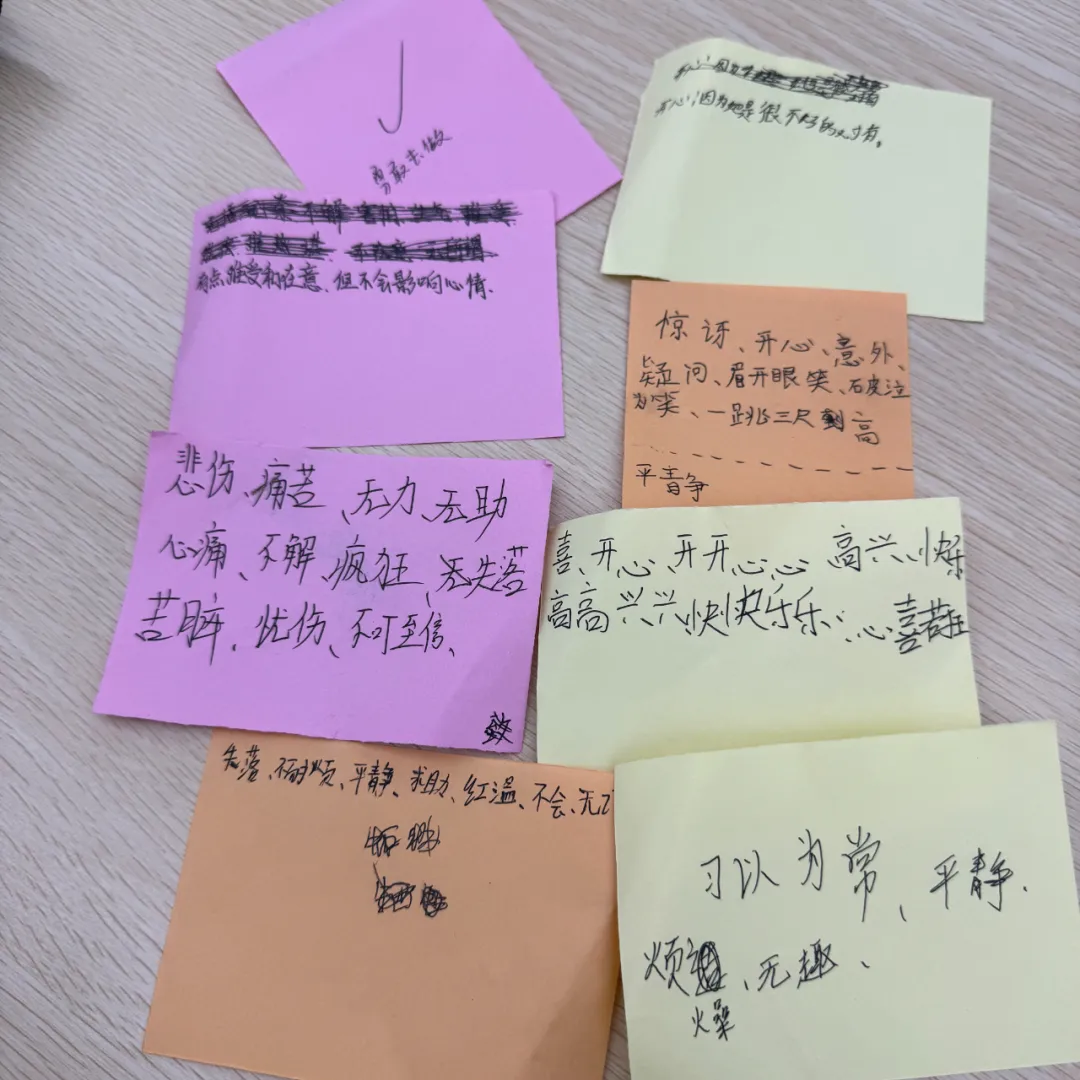 勇敢去做
开心因为他是很不好的对有。
有点难受和在意、但不会影响心情.
惊讶、开心、意外、
疑问、眉开眼笑、破泣
为笑、一跳三尺高
平静
悲伤、痛苦、无力、无助
心痛、不解、疯狂、无失落
苦脺、忧伤、不可至信、
喜、开心、开开心心、高兴、快乐
高高兴兴、快快乐乐、心喜若狂
失落、不耐烦、平静、求助、红温、不会、无
习以为常、平静.
烦、无趣、
燥